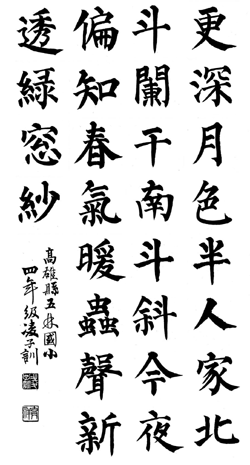 更深月色半人家北
斗闌干南斗斜今夜
偏知春氣暖蟲聲新
透綠窓紗
高雄縣五林國小
四年級凌子訓